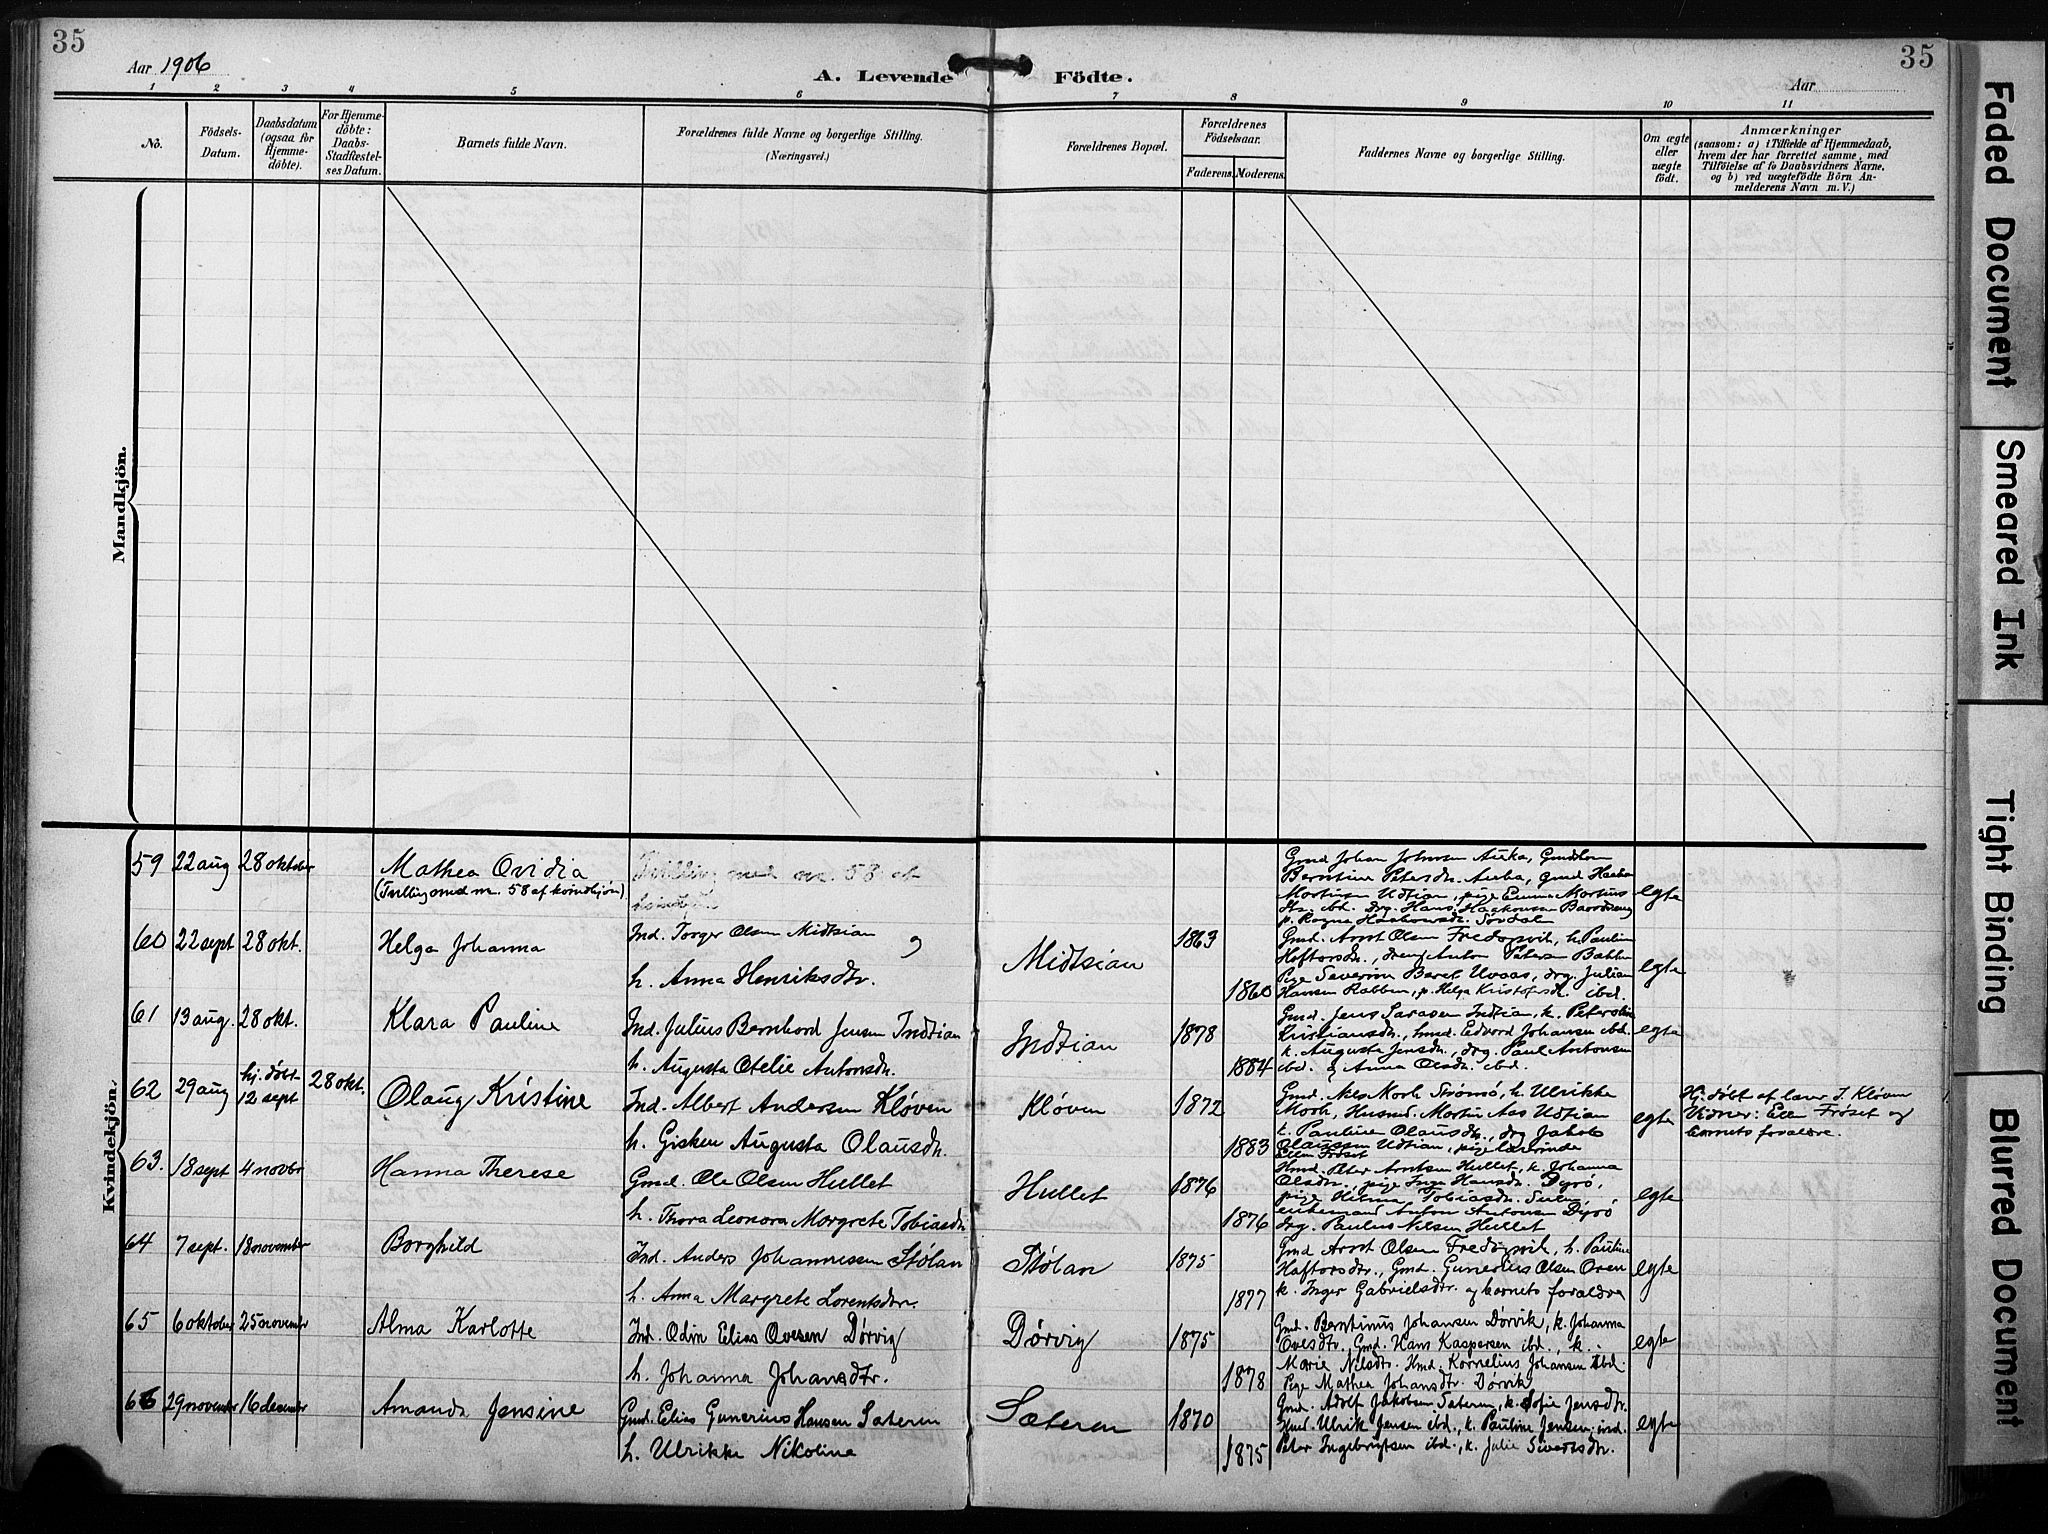 35
Aar 1906
A. Levende Födte.
Aar
35
1 2 3 4 5 6 7 8 9 10 11
No.
Födsels-
Datum.
Daabsdatum
(ogsaa for
Hjemme-
döbte).
For Hjemme-
döbte:
Daabs-
Stadfæstel-
ses Datum.
Barnets fulde Navn.
Forældrenes fulde Navne og borgerlige Stilling.
(Næringsvei.)
Forældrenes Bopæl.
Forældrenes
Födselsaar.
Faderens.
Moderens.
Faddernes Navne og borgerlige Stilling.
Om ægte
eller
uægte
födt.
Anmærkninger
(saasom: a) i Tilfælde af Hjemmedaab,
hvem der har forrettet samme, med
Tilföielse af to Daabsvidners Navne,
og b) ved uægtefödte Börn An-
melderens Navn m. V.)
Mandkjön.
Kvindekjön.
59 22 aug 28 oktober Mathea Ovidia
(Tvilling med nr. 58 af kvindkjøn)
Tvilling med nr. 58 af
Gmd Johan Johnsen Auka,
Berntine Petersdtr. Auka, Gmd Haakon
Mortinsen Udtian, pige Emma Mortins
dtr. ibd. Drg. Hans Haakonsen
p. Ragna Haakonsdtr. Sørdal
egte
60 22 sept 28 okt. Helga Johanna
Ind. Torger Olsen Midtsian og
h. Anna Henriksdtr.
Midtsian 1863
1860
Gmd. Arnt Olsen Fredagsvik, h. Pauline
Haftorsdtr., dreng Anton Petersen
Pige Severin Beret Uvaas, drg. Julian
Hansen Rabben, p. Helga Kristofersdt. ibd.
egte
61 13 aug. 28 okt. Klara Pauline
Ind. Julius Bernhard Jensen Indtian
h. Augusta Otelie Antonsdn.
Indtian 1878
1884
Gmd. Jens Larsen Indtian, k. Peterolin
Kristiansdn., hmd. Edvard Johansen ibd.
k. Augusta Jensdn., drg. Paul Antonsen
ibd. og Anna Olsdn. ibd.
egte
62 29 aug hj. døbt
12 sept 28 okt. Olaug Kristine
Ind. Albert Andersen Kløven
h. Gisken Augusta Olausdn.
Kløven 1872
1883
Gmd. Nels Moch Strømsø, h. Ulrikke
Moch, Husmd. Mortin Aas Udtian
k. Pauline Olausdtr., drg Jakob
Olaussen Udtian, pige lærerinde
Ellen Frøset
egte
Hj. døbt af lærer J. Kløven
Vidner: Ellen Frøset og
barnets forældre.
63. 18 sept 4 novbr Hanna Therese
Gmd. Ole Olsen Hullet
h. Thora Leonora Margrete Tobiasdn
Hullet 1876
1876
Hmd. Peter Arntsen Hullet, k. Johanna
Olsdn., pige Inga Hansdn. Dyrø,
pige Helmina Tobiasdn.
enkemand Anton Antonsen Dyrø
drg. Paulus Nilsen Hullet
egte
64 7 sept. 18 november Borghild
Ind. Anders Johannessen Stølan
h. Anna Margrete Lorentsdtr.
Stølan 1875
1877
Gmd Arnt Olsen Fredagsvik, h. Pauline
Haftorsdtr., Gmd. Gunerius Olsen Oven
k. Inger Gabrielsdtr. og barnets forældre
egte
65 6 oktober 25 november Alma Karlotte
Ind. Odin Elias Ovesen Dørvig
h. Johanna Johansdtr.
Dørvig 1875
1878
Gmd. Berntinus Johansen Dørvik, k. Johanna
Ovesdtr., Gmd. Hans Kaspersen ibd., k.
Marie Nilsdtr. Hmd. Kornelius Johansen ibd.
Pige Mathea Johansdtr. Dørvik
egte
66 29 november 16 desember Amanda Jensine
Gmd. Elias Gunerius Hansen Sateren
h. Ulrikke Nikoline
Sæteren 1870
1875
Gmd. Adolf Jakobsen Sateren, k. Sofie Jensdtr.
Hmd. Ulrik Jensen ibd., k. Pauline Jensen, ind.
Peter Ingebrigtsen ibd., k. Julie Sivertsdtr.
egte
Faded Document
Smeared Ink
Tight Binding
Blurred Document